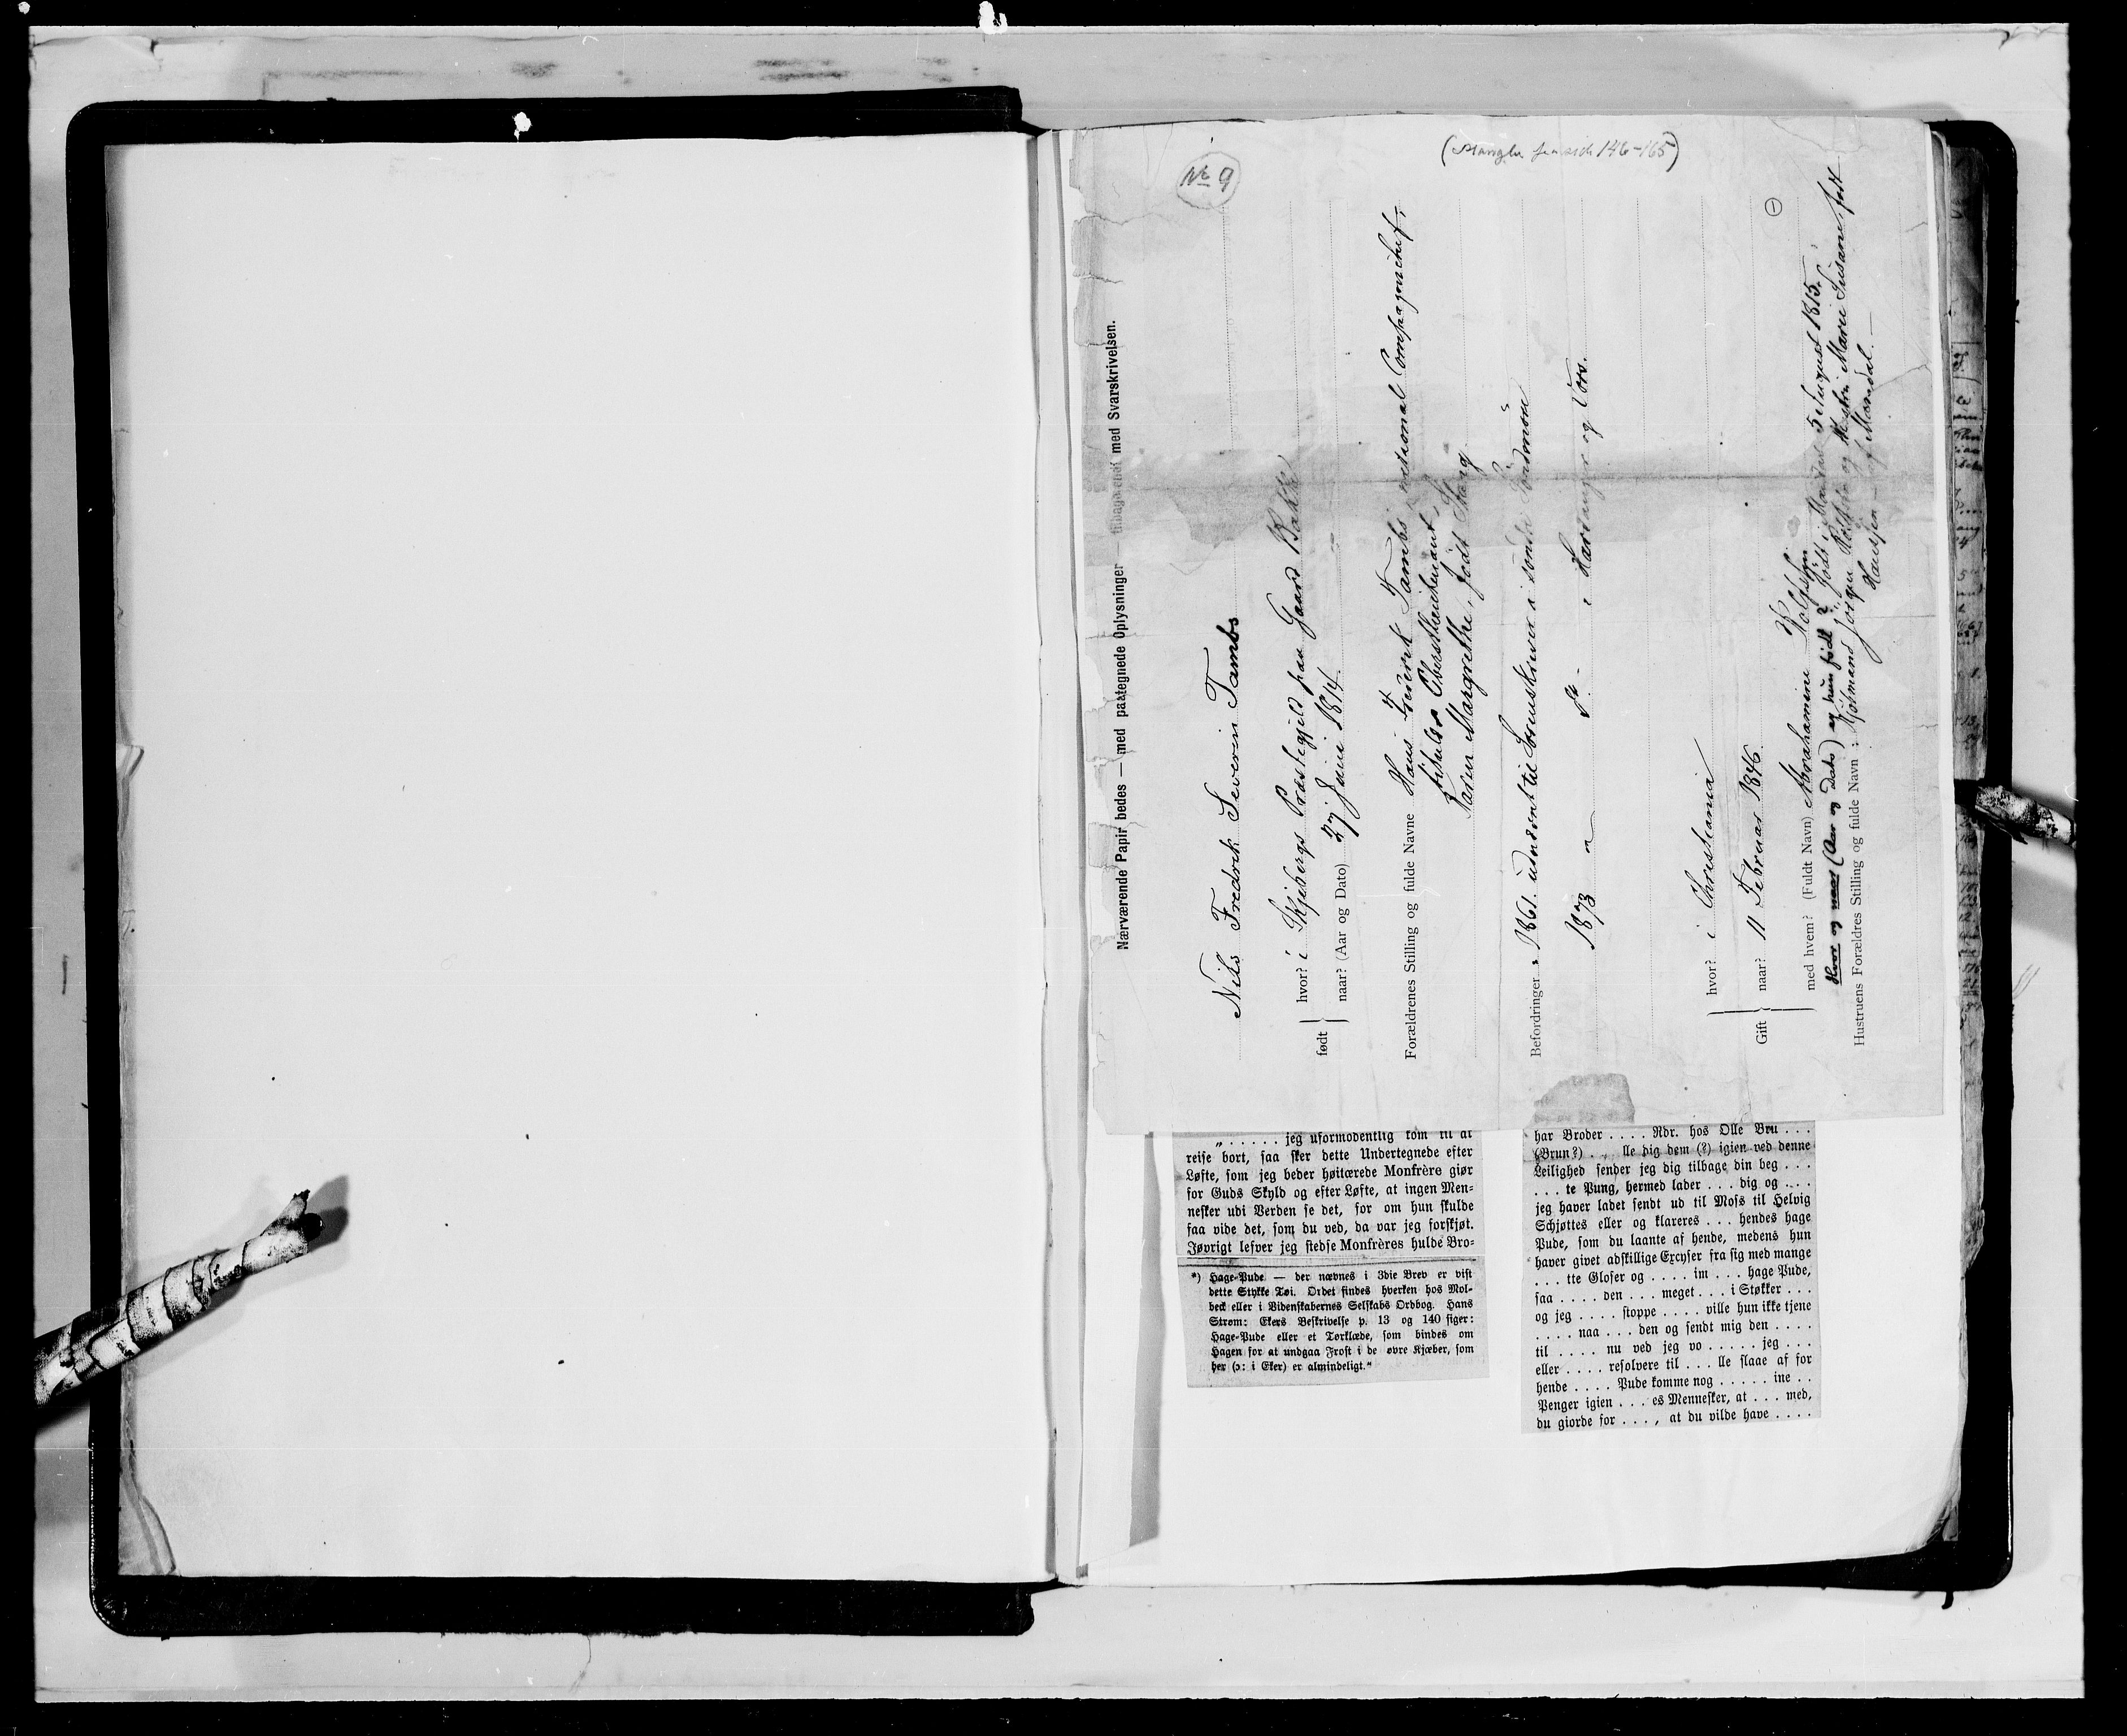 (Mangler fra side 146-165)
No 9
Nærværende Papir bedes — med paategnede Oplysninger — tilbagesendt med Svarskrivelsen.
Nils Fredrik Severin Tambs
født
hvor? i Skjebergs Præstegjeld paa Gaard Bakke
naar? (Aar og Dato) 27 Juni 1814.
Forældrenes Stilling og fulde Navne Hans Fredrik Tambs national Compagnichef,
titulær Oberstleutenant,
Karen Margrethe, født Stang
Befordringer 1861. udnævnt til Sorenskriver i søndre Søndmøre
1873 " " i Hardanger og Vors.
Gift
hvor? i Christiania
naar? 11 Februar 1846.
med hvem? (Fuldt Navn) Abrahamine Rolfsen
Hvor og naar (Aar og Dato) er hun født? Født i Mandal 5 August 1815.
Hustruens Forældres Stilling og fulde Navn: Kjøbmand Jørgen Rolfsen og Hustru Marie Susanne, født
Haussen — af Mandal. —
„ . . . . . jeg uformodentlig kom til at
reise bort, saa sker dette Undertegnede efter
Løfte, som jeg beder høitærede Monfrère giør
for Guds Skyld og efter Løfte, at ingen Men-
nesker udi Verden se det, for om hun skulde
faa vide det, som du ved, da var jeg forskjøt.
Iøvrigt lefver jeg stedse Monfrères hulde Bro-
*) Hage-Pude — der nævnes i 3die Brev er vist
dette Stykke Tøi. Ordet findes hverken hos Mol-
bech eller i Videnskabernes Selskabs Ordbog. Hans
Strøm: Ekers Beskrivelse p. 13 og 140 siger:
Hage-Pude eller et Tørklæde, som bindes om
Hagen for at undgaa Frost i de øvre Kjæber, som
her (ɔ: i Eker) er almindeligt."
har Broder . . . . Rdr. hos Olle Bru . . .
(Brun?) . . lle dig dem (?) igien ved denne
Leilighed sender jeg dig tilbage din beg . . .
. . . te Pung, hermed lader . . . dig og . . .
jeg haver ladet sendt ud til Moss til Helvig
Schjøttes eller og klareres . . . hendes hage
Pude, som du laante af hende, medens hun
haver givet adskillige Excyser fra sig med mange
. . . tte Gloser og . . . . im . . . hage Pude,
saa . . . . den . . . meget . . . i Støkker . . .
og jeg . . . . stoppe . . . . ville hun ikke tjene
. . . . naa . . . den og sendt mig den . . . .
til . . . . nu ved jeg vo . . . . . jeg . . .
eller . . . . resolvere til . . . lle slaae af for
hende . . . . Pude komme nog . . . . . ine . .
Penger igien . . . es Mennesker, at . . . med,
du giorde for . . . , at du vilde have . . . .